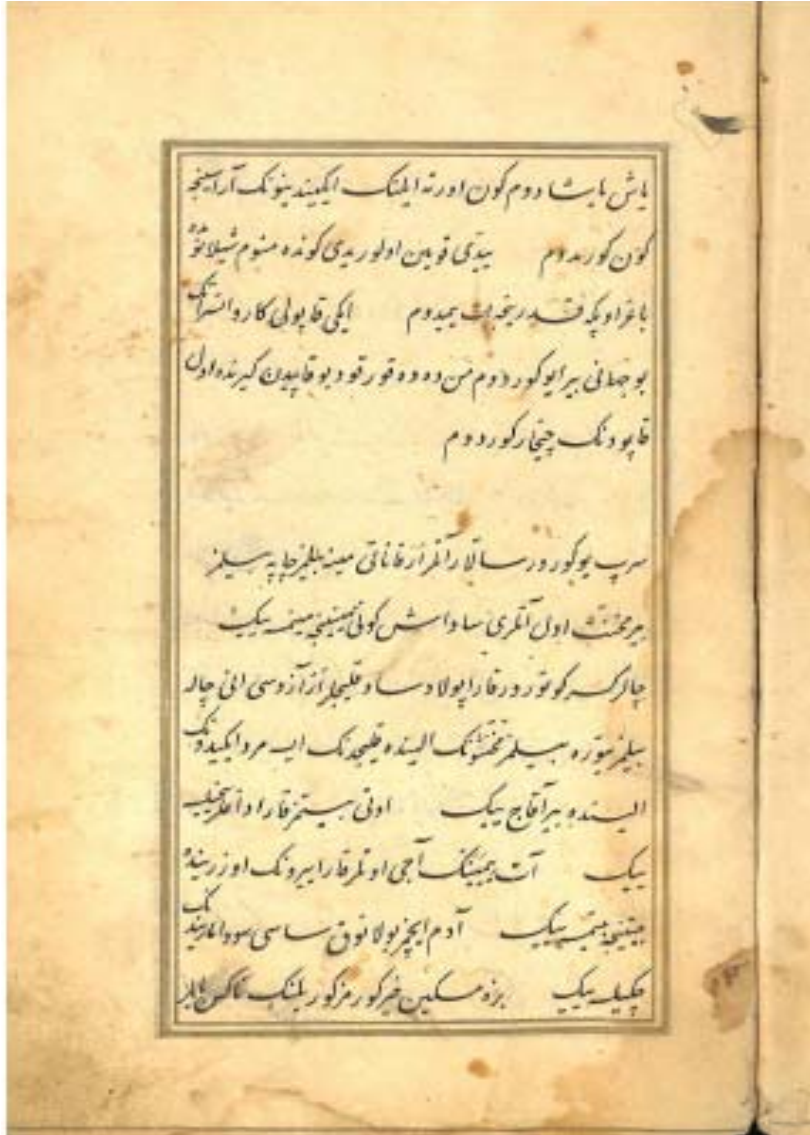 یاش یاشادوم کون اورته ایلنک ایکیندینونک آراسنجه
کون کوردوم بیدی قویین اولوریدی کونده منوم شیلانوم
باغراوپکه یمیدوم ایکی قاپولی کاروانسرانک
بو جهانی بیر ایو کوردوم من ده ده قورقود بو قاپیدن کیرنده اول
قاپودنک چیخار کوردوم
سرپ یوکورور سالار آتلر ار قاناتی مینه بیلمز چاپه بیلمز
بیر اول آتلری ساواش کونی مینینجه مینمه ییک
چالر کسر کوتورور قارا پولاد ساو قلیجلر از آزوسی انی چالر
بیلمز الینده قلیجدنک ایسه مرد ایکیدونک
الینده بیر آقاج ییک اوتی بیتمز قارا داغلر
ییک آت ییمینک آجی اوتلر قارا ییرونک اوزرینده
بیتینجه بیتمه ییک آدم ایچمز بولانوق ساسی سودامارینک
چکیله ییک بزه مسکین خیر کورمز کوربلنک ناکس